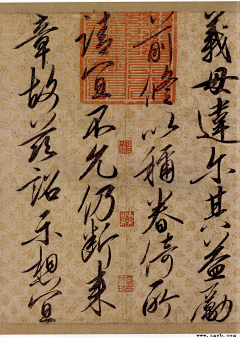 義毋違尔其益勵
前修以稱眷倚所
請宜不允仍断来
章故茲詔示想宜